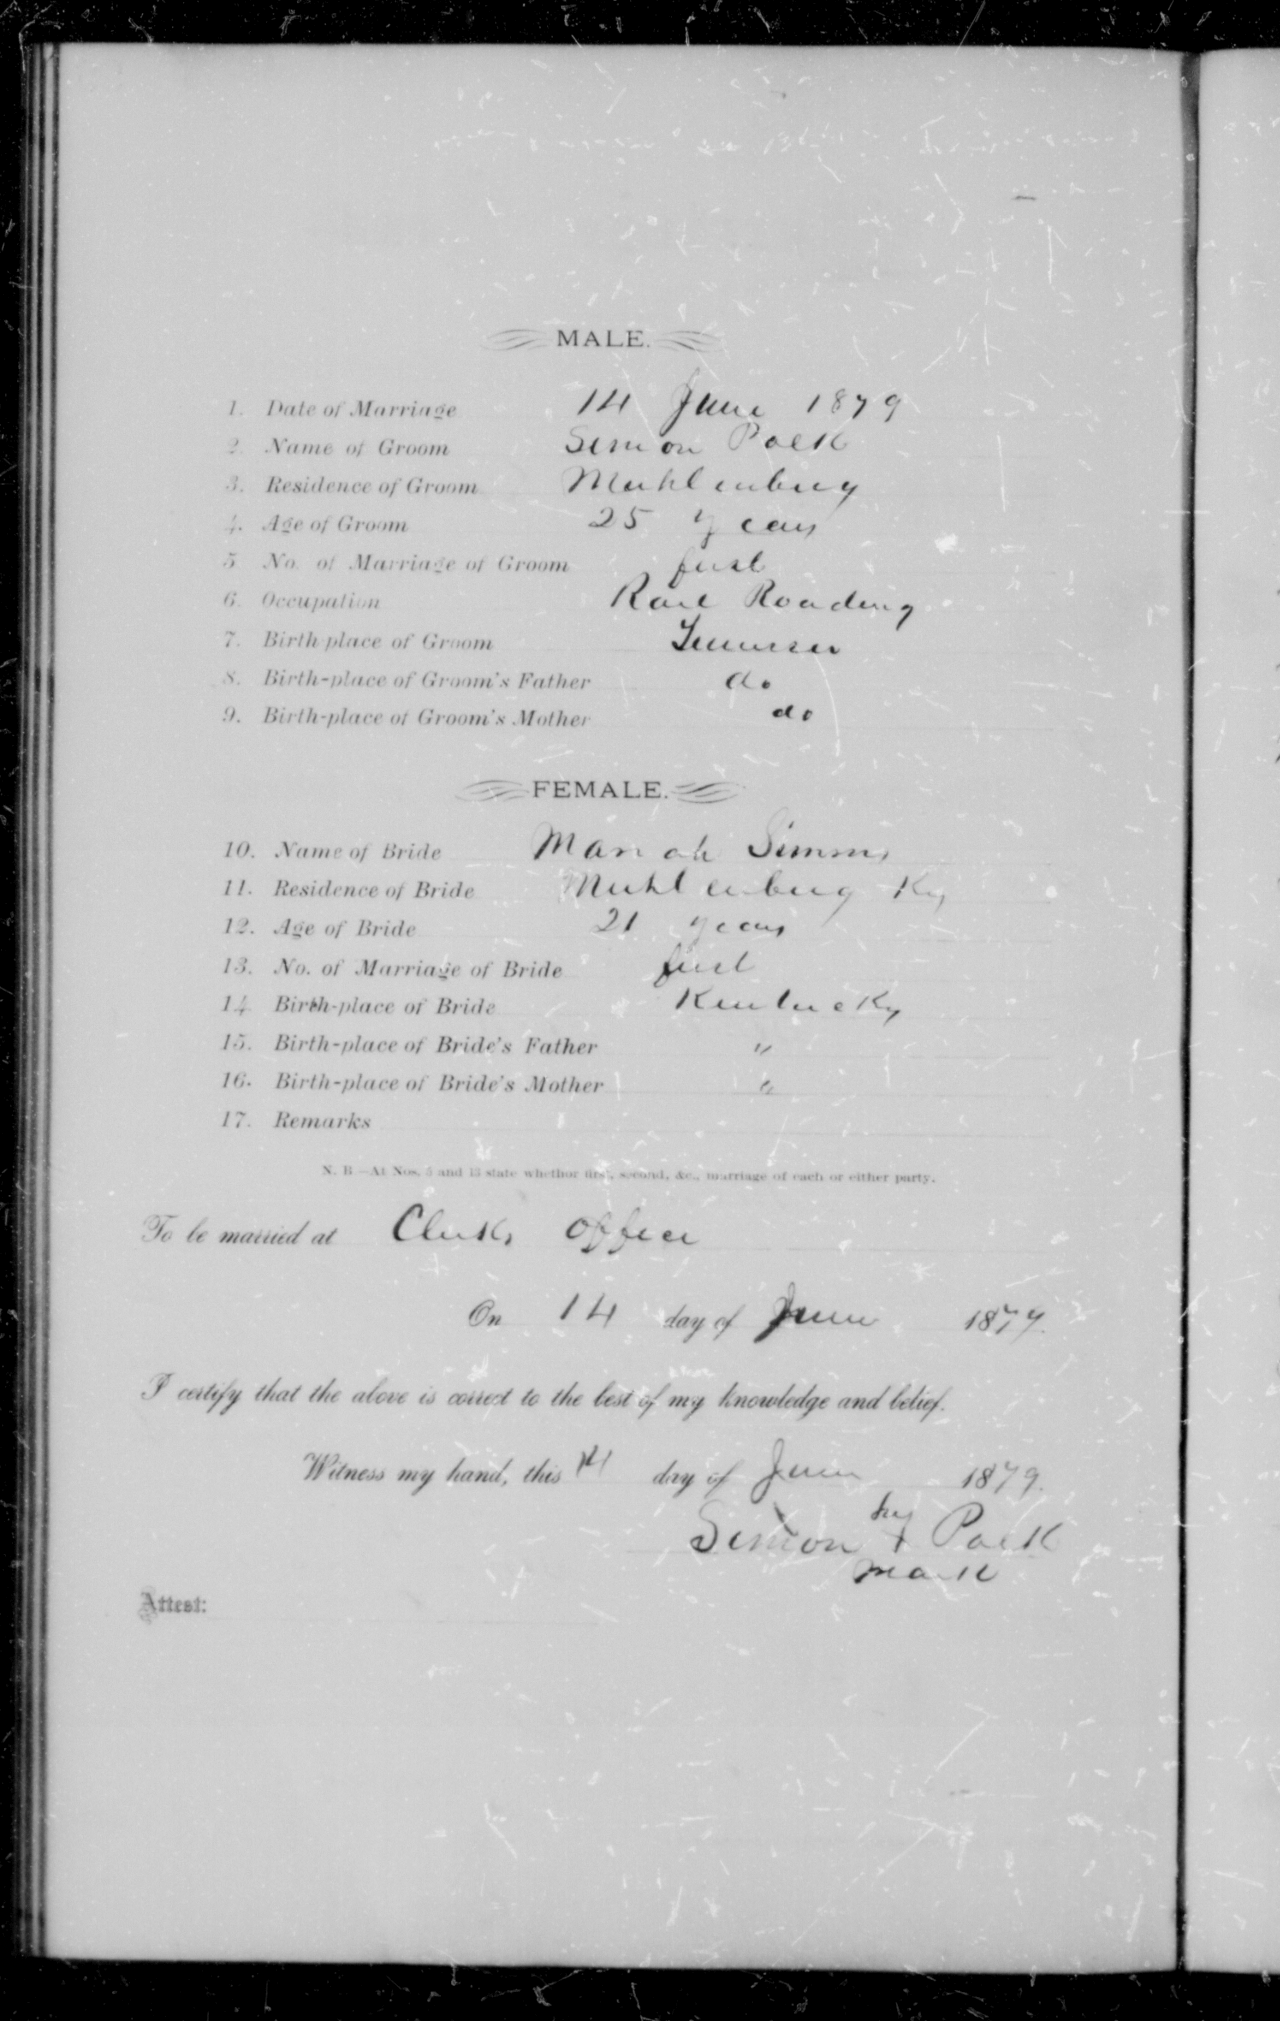 MALE.
1. Date of Marriage 14 June 1879
2. Name of Groom Simon Polk
3. Residence of Groom Muhlenburg
4. Age of Groom 25 years
5 No. of Marriage of Groom first
6. Occupation Rail Roading
7. Birth place of Groom Tennessee
8. Birth-place of Groom's Father do
9. Birth-place of Groom's Mother do
FEMALE.
10. Name of Bride Mariah Simms
11. Residence of Bride Muhlenburg Ky
12. Age of Bride 21 years
13. No. of Marriage of Bride first
14 Birth-place of Bride Kentucky
15. Birth-place of Bride's Father "
16. Birth-place of Bride's Mother "
17. Remarks
N. B.—At Nos. 5 and 13 state whether first, second, &c., marriage of each or either party.
To be married at Clerks office
On 14 day of June 1879.
I certify that the above is correct to the best of my knowledge and belief.
Witness my hand, this 14 day of June 1879.
his
Simon X Polk
mark
Attest: